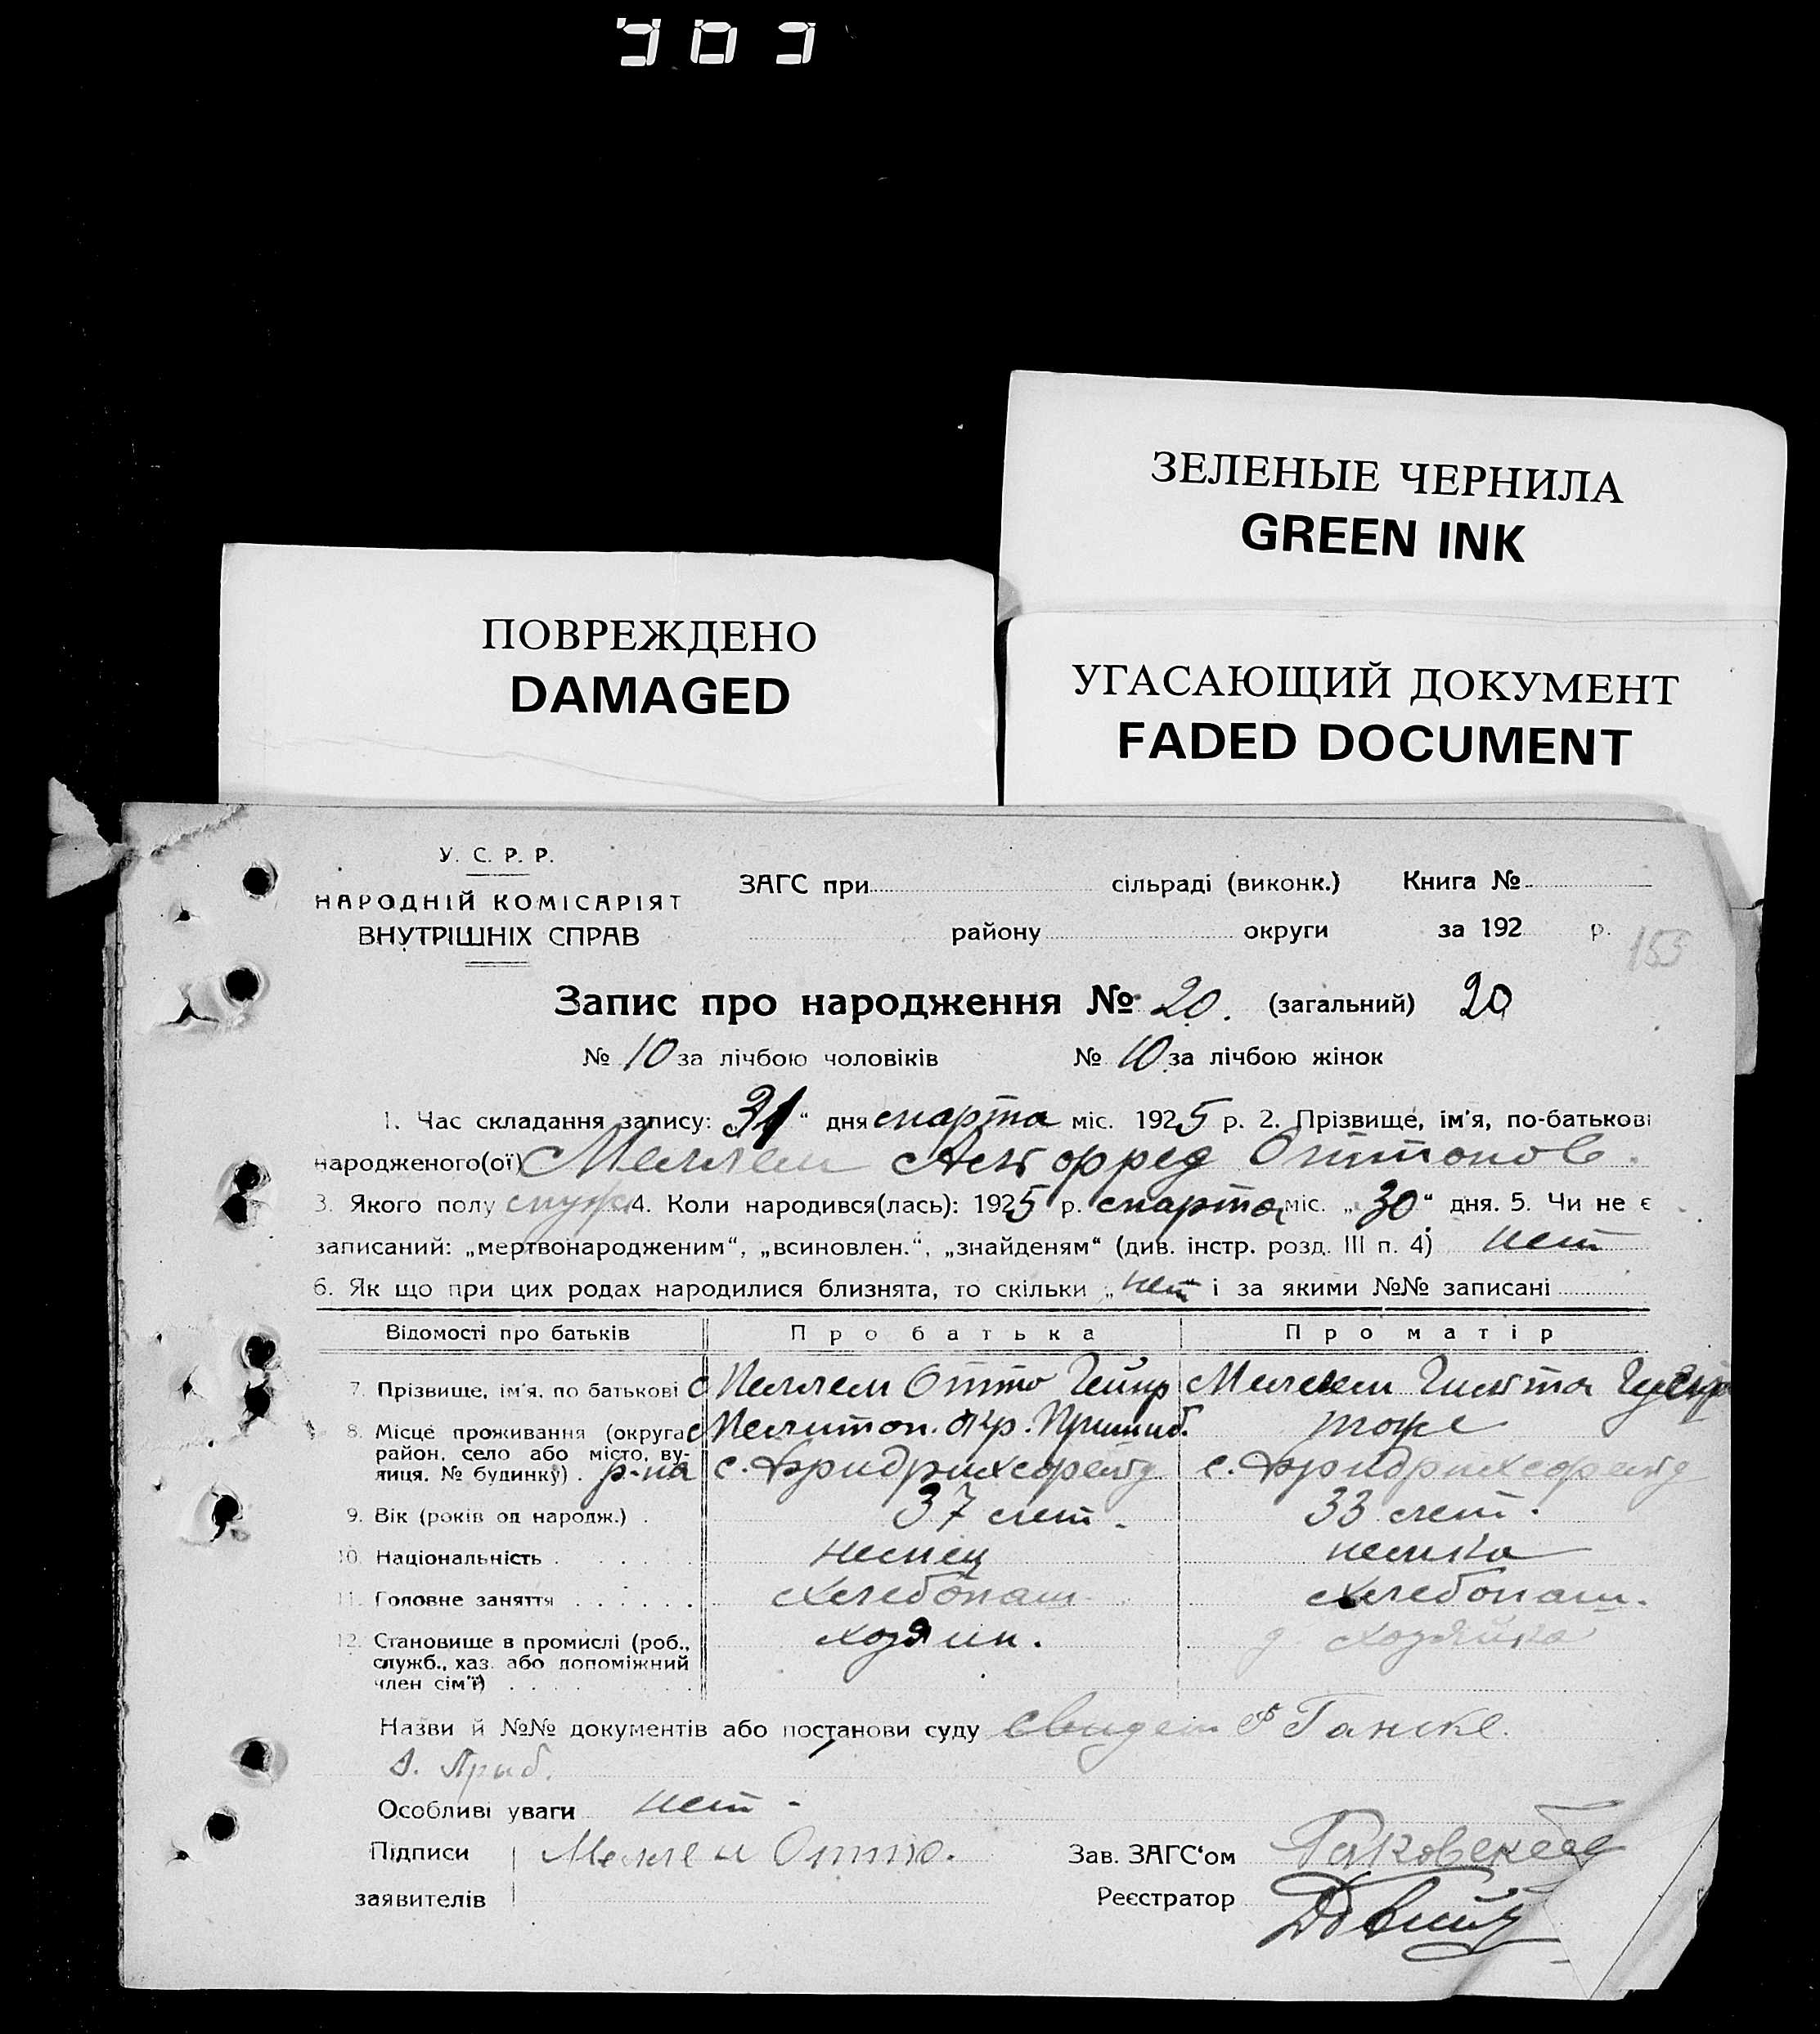 ЗЕЛЕНЫЕ ЧЕРНИЛА
GREEN INK
ПОВРЕЖДЕНО
DAMAGED
УГАСАЮЩИЙ ДОКУМЕНТ
FADED DOCUMENT
У. С. Р. Р.
НАРОДНІЙ КОМІСАРІЯТ
ВНУТРІШНІХ СПРАВ
ЗАГС при сільраді (виконк.) Книга №
району округи за 192 р.
153
Запис про народження № 20. (загальний) 20
№ 10 за лічбою чоловіків № 10 за лічбою жінок
1. Час складання запису: 31 “ дня марта міс. 1925 р. 2. Прізвище, ім'я, по-батькові
народженого(ої) Меллем Альфред Оттонов.
3. Якого полу муж 4. Коли народився(лась): 1925 р. марта міс. „30“ дня. 5. Чи не є
записаний: „мертвонародженим“, „всиновлен.“, „знайденям“ (див. інстр. розд. III п. 4) нет
6. Як що при цих родах народилися близнята, то скільки „нет“ і за якими №№ записані
Відомості про батьків Про батька Про матір
7. Прізвище, ім'я, по батькові Меллем Отто Гейнр Меллем Гильта
8. Місце проживання (округа, район, село або місто, вулиця, № будинку) . р-на Мелитоп. окр. Пришиб. тоже
с. Фридрихсфельд с. Фридрихсфельд
9. Вік (років од народж.) . 37 лет. 33 лет.
10. Національність . немец немка
11. Головне заняття . . . . . . хлебопаш. хлебопаш.
12. Становище в промислі (роб., хозяин. д хозяйка
служб., хаз. або допоміжний
член сім'ї)
Назви й №№ документів або постанови суду свидет Ф Ганске.
Особливі уваги нет -
Підписи Меллем Отто. Зав. ЗАГС'ом
заявителів Реєстратор